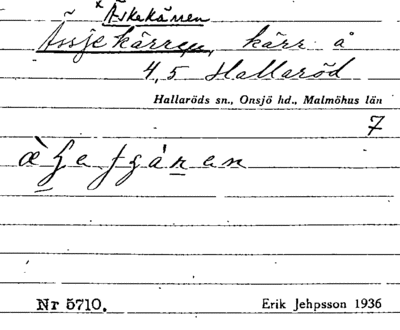 × Äskekärren
Ässjekärren, kärr å
4, 5 Hallaröd
Hallaröds sn., Onsjö hd., Malmöhus län
7
Nr 5710. Erik Jehpsson 1936